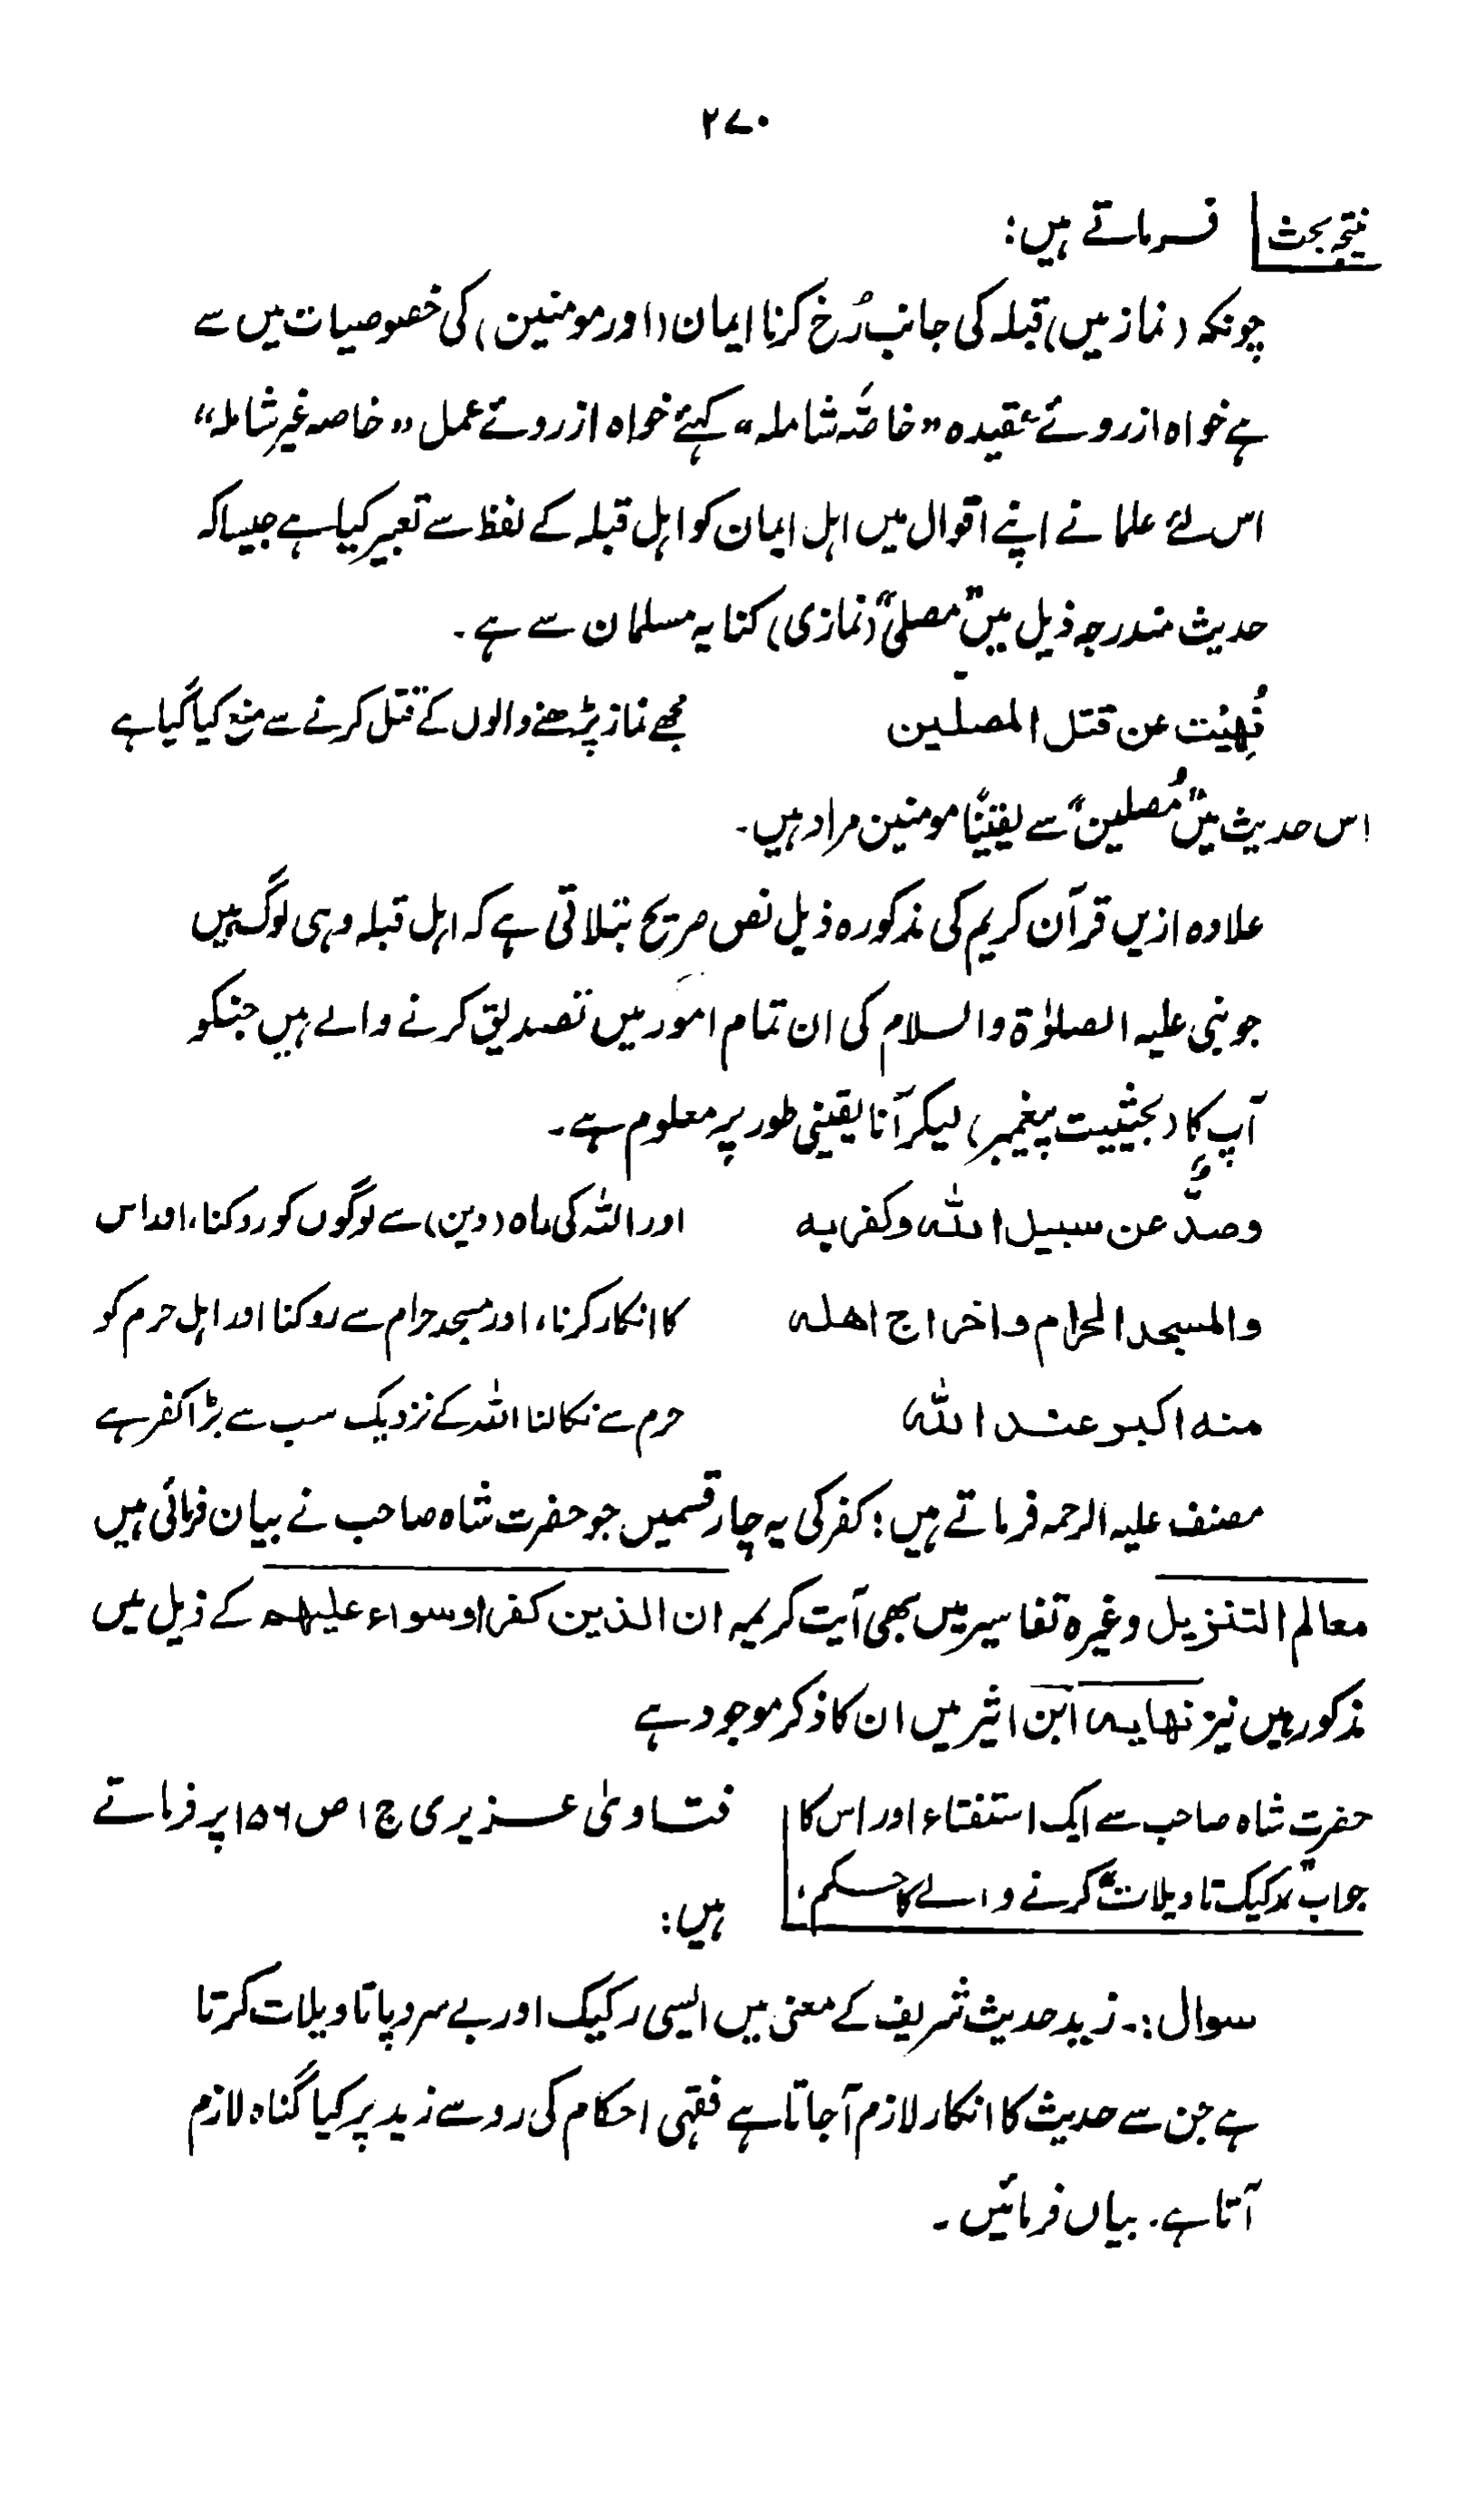 ۲۷۰
نتیجۂ بحث فرماتے ہیں:
چونکہ (نماز میں) قبلہ کی جانب رُخ کرنا ایمان (اور مومنین) کی خصوصیات میں سے
ہے خواہ ازروئے عقیدہ "خاصّہ شاملہ" کہئے خواہ ازروئے عمل "خاصہ غیر شاملہ"
اس لئے علما نے اپنے اقوال میں اہل ایمان کو اہل قبلہ کے لفظ سے تعبیر کیا ہے جیسا کہ
حدیث مندرجہ ذیل میں "مصلی" (نمازی) کنایہ مسلمان سے ہے۔
نُهِیْت عن قتل المصلین مجھے نماز پڑھنے والوں کے قتل کرنے سے منع کیا گیا ہے
اس حدیث میں "مُصلین" سے یقیناً مومنین مراد ہیں۔
علاوہ ازیں قرآن کریم کی مذکورہ ذیل نص صریح بتلاتی ہے کہ اہل قبلہ وہی لوگ ہیں
جو نبی علیہ الصلوٰۃ والسلام کی ان تمام امور میں تصدیق کرنے والے ہیں جنکو
آپ کا (بحیثیت پیغمبر) لیکر آنا یقینی طور پر معلوم ہے۔
وصدٌّ عن سبیل الله وکفر به اور اللہ کی راہ (دین) سے لوگوں کو روکنا، اور اس
والمسجد الحرام واخراج اهله کا انکار کرنا، اور مسجد حرام سے روکنا اور اہل حرم کو
منه اکبر عند الله حرم سے نکالنا اللہ کے نزدیک سب سے بڑا کفر ہے
مصنف علیہ الرحمہ فرماتے ہیں: کفر کی یہ چار قسمیں جو حضرت شاہ صاحب نے بیان فرمائی ہیں
معالم التنزیل وغیرہ تفاسیر میں بھی آیت کریمہ ان الذین کفروا سواء علیهم کے ذیل میں
مذکور ہیں نیز نهایه ابن اثیر میں ان کا ذکر موجود ہے
حضرت شاہ صاحب سے ایک استفتاء اور اس کا فتاویٰ عزیزی ج ۱ ص ۱۵۶ پر فرماتے
جواب "رکیک تاویلات" کرنے والے کا حکم: ہیں:
سوال:۔ زید حدیث شریف کے معنی میں ایسی رکیک اور بے سروپا تاویلات کرتا
ہے جن سے حدیث کا انکار لازم آجاتا ہے فقہی احکام کی رو سے زید پر کیا گناہ لازم
آتا ہے۔ بیاں فرمائیں۔